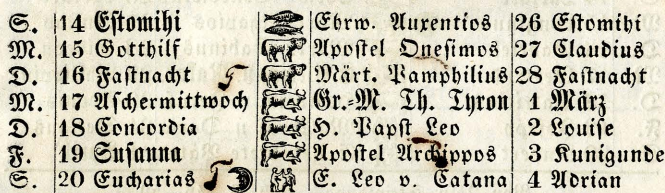 S. 14 Estomihi Ehrw. Auxentios 26 Estomihi
M. 15 Gotthilf Apostel Onesimos 27 Claudius
D. 16 Fastnacht Märt. Pamphilius 28 Fastnacht
M. 17 Aschermittwoch Gr.-M. Th. Tyron 1 März
D. 18 Concordia H. Papst Leo 2 Louise
F. 19 Susanna Apostel Archippos 3 Kunigunde
S. 20 Eucharias E. Leo v. Catana 4 Adrian